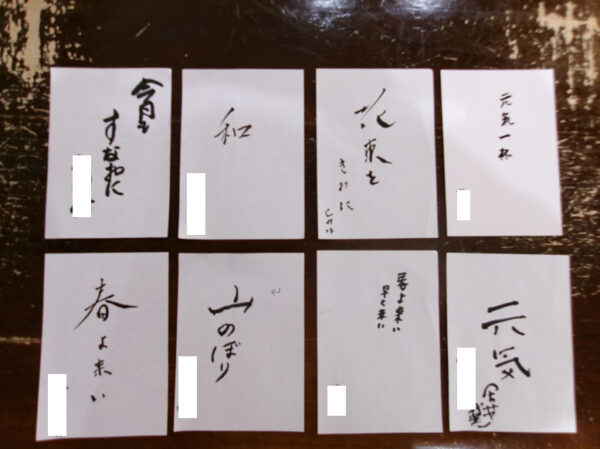 今日も
すなおに
和
花束を
きみに
元気一杯
春よ来い
山のぼり
春よ来い
早く来い
元気